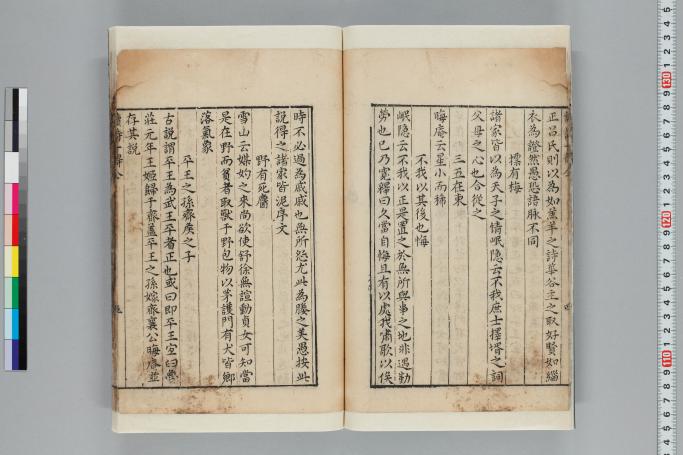 正呂氏則以為如羔羊之詩華谷主之取好賢如緇
衣為證然愚恐語脉不同
摽有梅
諸家皆以為天子之情岷隐云不我庶士擇壻之詞
父母之心也合從之
三五在東
晦庵云星小而稀
不我以其後也悔
岷隐云不我以正是置之於無所與事之地非過勤
勞也已乃寛釋曰久當自悔且有以處我嘯歌以俟
時不必過為戚戚也無所怨尤此為媵之美愚按此
説得之諸家皆泥序文
野有死麕
雪山云媒妁之來尚欲使舒徐無諠動貞女可知當
是在野而貧者取獸于野包物以茅護門有犬皆鄉
落氣象
平王之孫齊侯之子
古説謂平王為武王平者正也或曰即平王宜臼魯
莊元年王姬歸于齊蓋平王之孫嫁齊襄公晦庵並
存其説
130
120
110